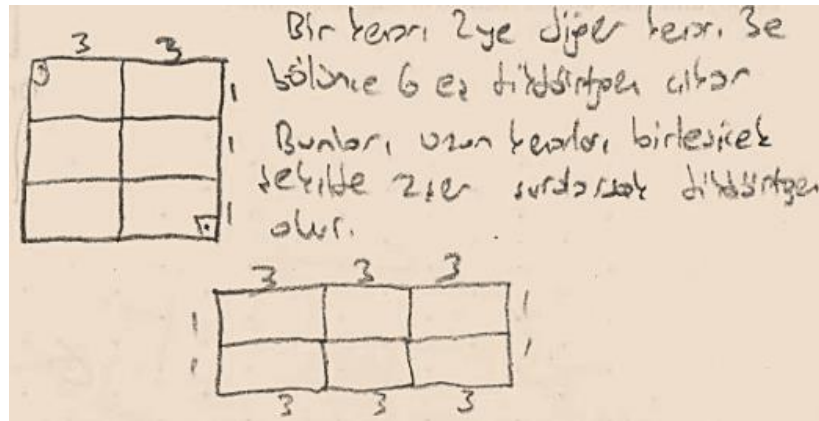 3 3
Bir kenarı 2ye diğer kenarı 3e
bölünce 6 eş dikdörtgen çıkar
Bunları uzun kenarları birleşicek
şekilde 2şer sıralarsak dikdörtgen
olur.
1
1
1
3 3 3
1 1
1 1
3 3 3